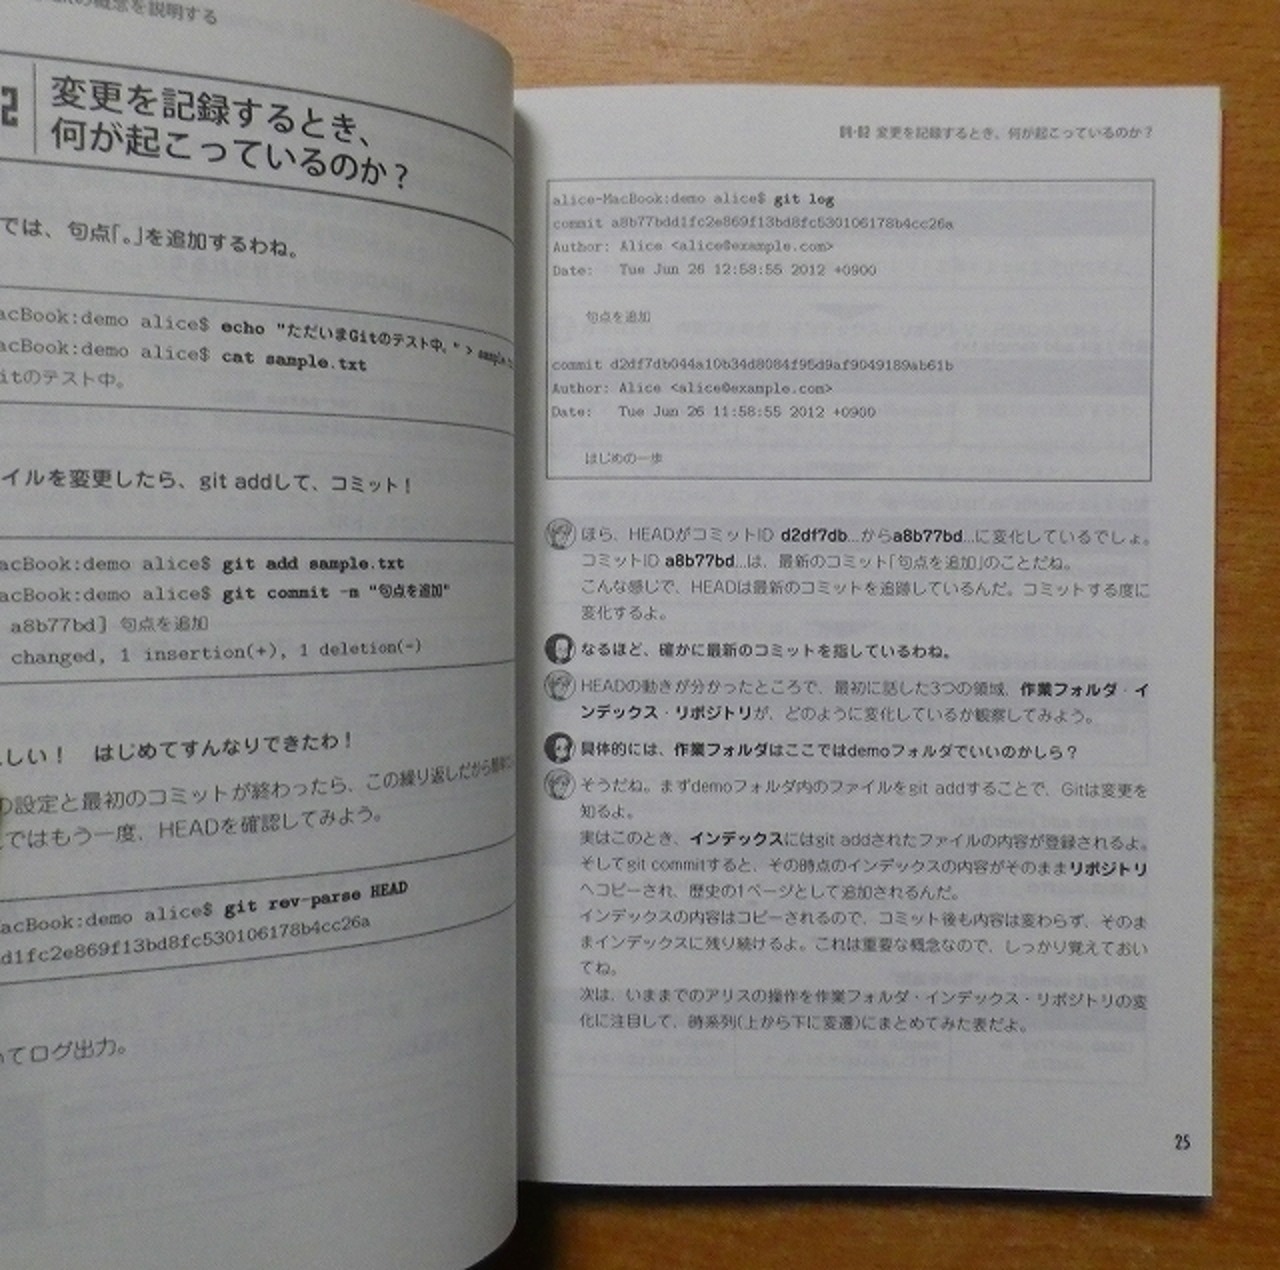 の概念を説明する
2
変更を記録するとき、
何が起こっているのか?
では、句点「。」を追加するわね。
acBook:demo alice$ echo "ただいまGitのテスト中。" > sample.t
acBook:demo alice$ cat sample.txt
itのテスト中。
イルを変更したら、git addして、コミット!
acBook:demo alice$ git add sample.txt
acBook:demo alice$ git commit -m "句点を追加"
a8b77bd] 句点を追加
changed, 1 insertion(+), 1 deletion(-)
しい! はじめてすんなりできたわ!
の設定と最初のコミットが終わったら、この繰り返しだから簡単
ではもう一度、HEADを確認してみよう。
MacBook:demo alice$ git rev-parse HEAD
d1fc2e869f13bd8fc530106178b4cc26a
てログ出力。
01-02 変更を記録するとき、何が起こっているのか?
alice-MacBook:demo alice$ git log
commit a8b77bdd1fc2e869f13bd8fc530106178b4cc26a
Author: Alice <alice@example.com>
Date: Tue Jun 26 12:58:55 2012 +0900
句点を追加
commit d2df7db044a10b34d8084f95d9af9049189ab61b
Author: Alice <alice@example.com>
Date: Tue Jun 26 11:58:55 2012 +0900
はじめの一歩
ほら、HEADがコミットID d2df7db...からa8b77bd...に変化しているでしょ。
コミットID a8b77bd...は、最新のコミット「句点を追加」のことだね。
こんな感じで、HEADは最新のコミットを追跡しているんだ。コミットする度に
変化するよ。
なるほど、確かに最新のコミットを指しているわね。
HEADの動きが分かったところで、最初に話した3つの領域、作業フォルダ・イ
ンデックス・リポジトリが、どのように変化しているか観察してみよう。
具体的には、作業フォルダはここではdemoフォルダでいいのかしら?
そうだね。まずdemoフォルダ内のファイルをgit addすることで、Gitは変更を
知るよ。
実はこのとき、インデックスにはgit addされたファイルの内容が登録されるよ。
そしてgit commitすると、その時点のインデックスの内容がそのままリポジトリ
へコピーされ、歴史の1ページとして追加されるんだ。
インデックスの内容はコピーされるので、コミット後も内容は変わらず、そのま
まインデックスに残り続けるよ。これは重要な概念なので、しっかり覚えておい
てね。
次は、いままでのアリスの操作を作業フォルダ・インデックス・リポジトリの変
化に注目して、時系列(上から下に変遷)にまとめてみた表だよ。
25